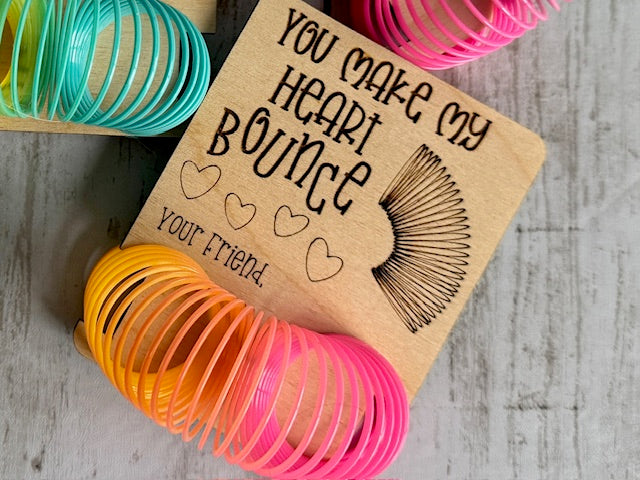 YOU MAKE MY
HEART
BOUNCE
YOUR FRIEND,